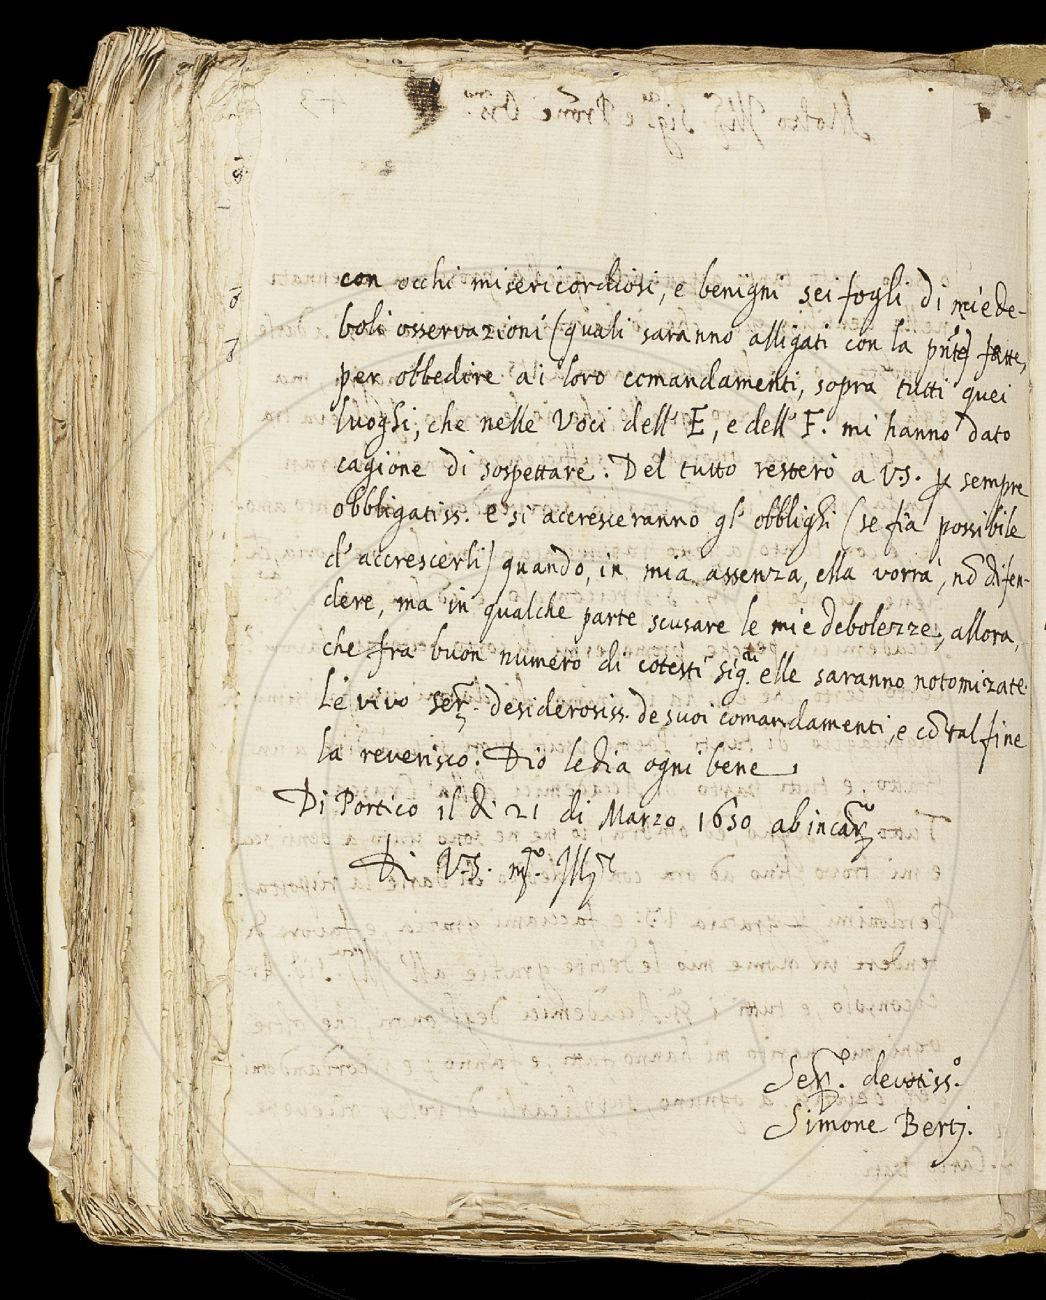 con occhi misericordiosi, e benigni sei fogli di mie de-
boli osservazioni (quali saranno alligati con la pñte) fatte,
per obbedire ai loro comandamenti, sopra tutti quei
luoghi, che nelle Voci dell' E, e dell' F. mi hanno dato
cagione di sospettare. Del tutto resterò a V.S. ꝑ sempre
obbligatiss. e si accresceranno gl' obblighi (se fia possibile
d' accrescerli) quando, in mia assenza, ella vorrà, nõ difen-
dere, ma in qualche parte scusare le mie debolezze, allora,
che fra buon numero di cotesti sig.ri elle saranno notomizate.
Le vivo ser.re desiderosiss. de suoi comandamenti, e cõ tal fine
la reverisco. Dio le dia ogni bene.
Di Portico il dì 21 di Marzo 1650 ab incar.ne
Di V.S. m.to Ill.re
Ser.re devotiss.o
Simone Bertj.